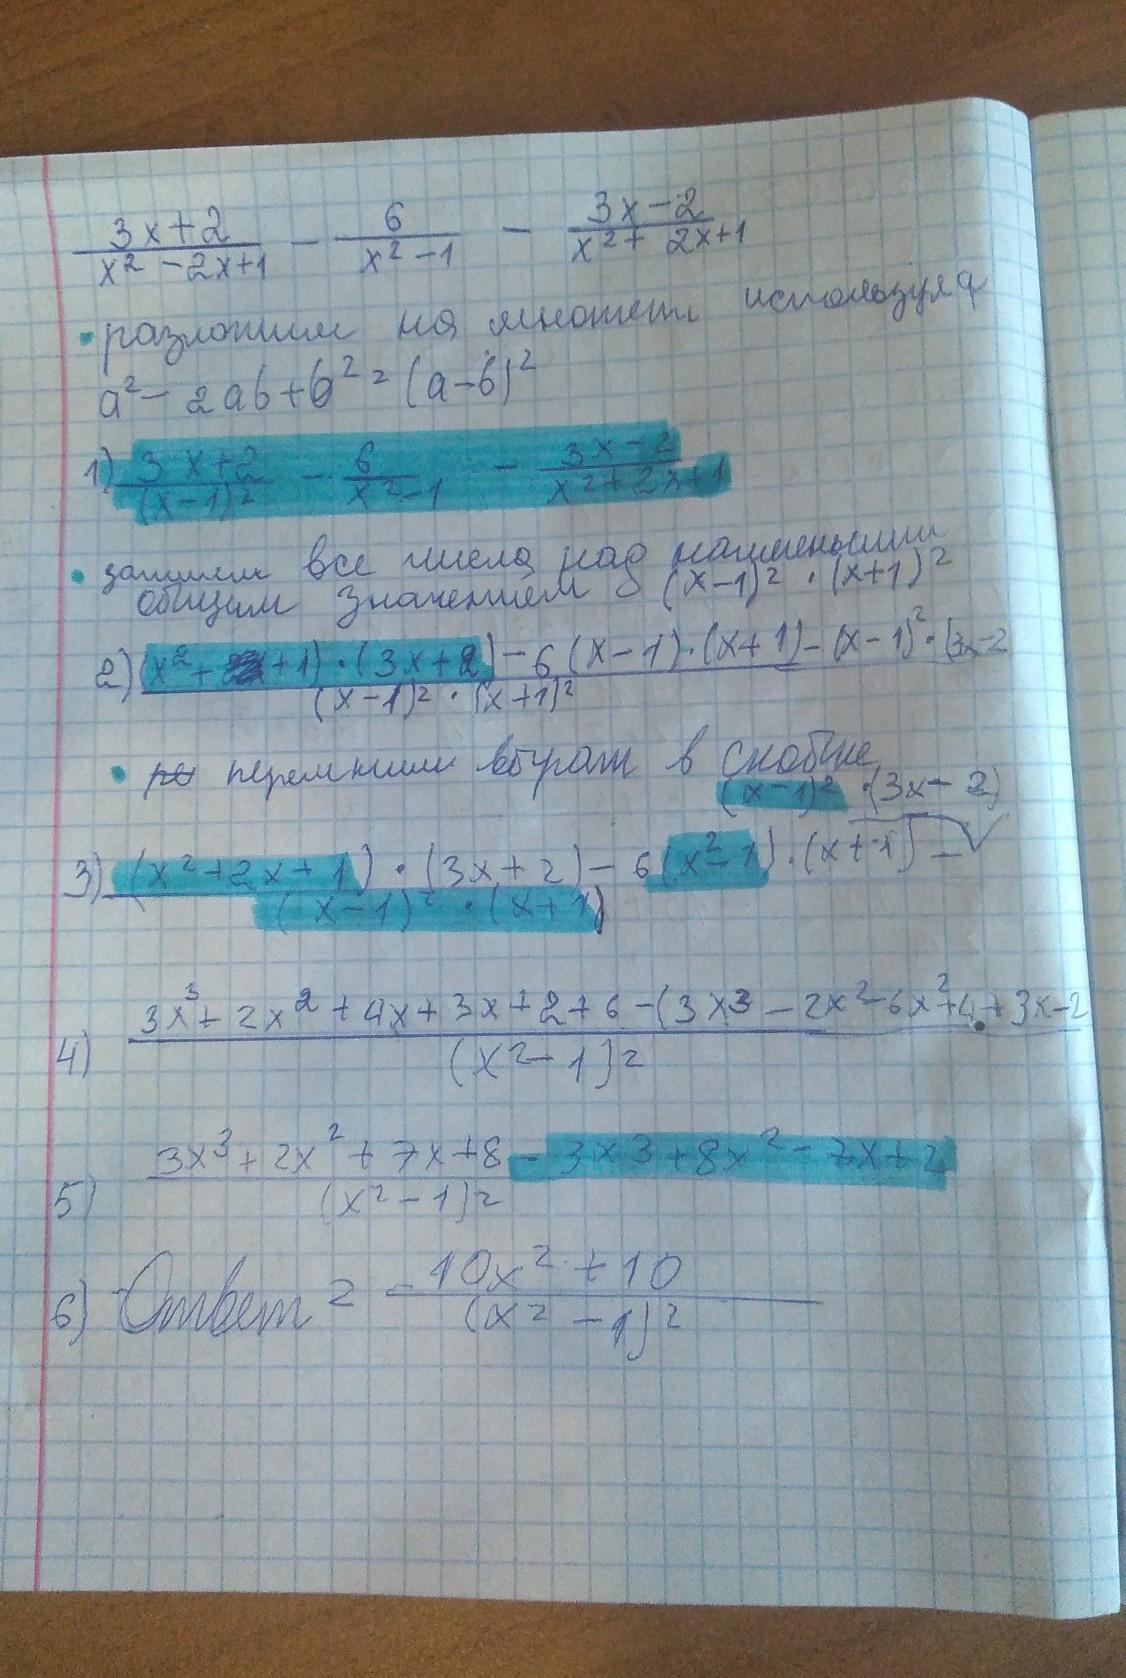 3x+2/x²-2x+1 - 6/x²-1 - 3x-2/x²+2x+1
• разложим на множит используя
a²-2ab+b²=(a-b)²
1) 3x+2/(x-1)² - 6/x²-1 - 3x-2/x²+2x+1
• запишем все числа над наименьшим
общим значением (x-1)²·(x+1)²
2) (x²+2x+1)·(3x+2)-6(x-1)·(x+1)-(x-1)²·(3x-2/(x-1)²·(x+1)²
• перемножим выраж в скобке
(x-1)²·(3x-2)
3) (x²+2x+1)·(3x+2)-6(x²-1)·(x+1)-/(x-1)²·(x+1)
4) 3x³+2x²+4x+3x+2+6-(3x3-2x²-6x²+4+3x-2/(x²-1)²
5) 3x³+2x²+7x+8-3x3+8x²-7x+2/(x²-1)²
6) Ответ = -10x²+10/(x²-1)²